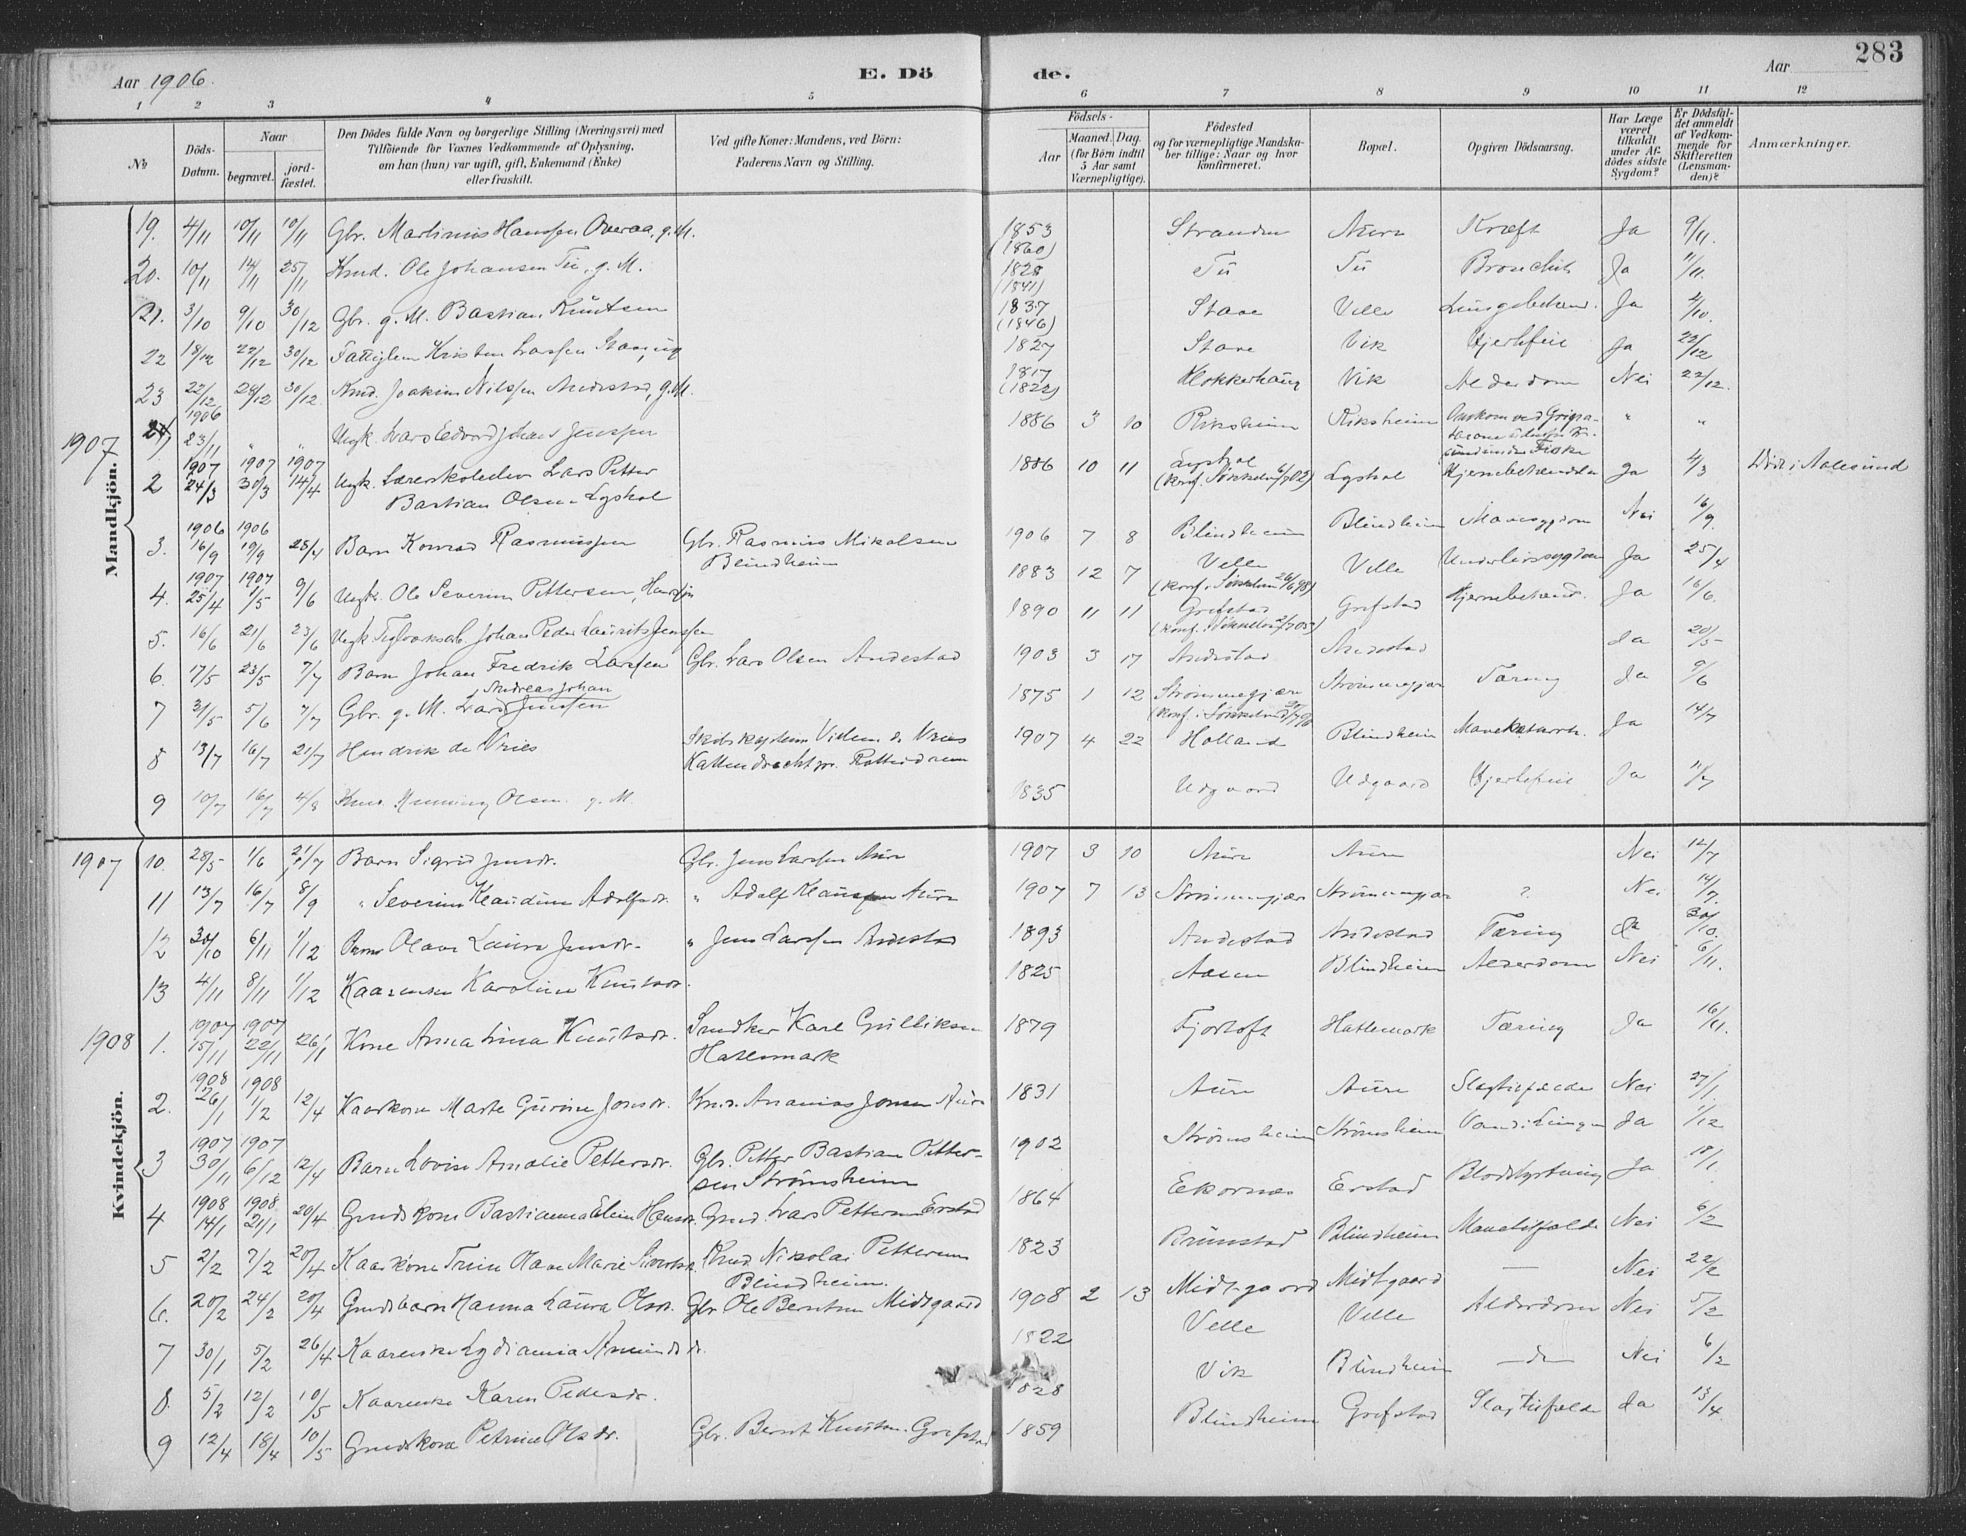 283
Aar 1906.
E. Dö
de.
Aar
1 2 3 4 5 6 7 8 9 10 11 12
No
Döds-Datum.
Naar
begravet.
jord-fæstet.
Den Dödes fulde Navn og borgerlige Stilling (Næringsvei) med
Tilföiende for Voxnes Vedkommende af Oplysning,
om han (hun) var ugift, gift, Enkemand (Enke)
eller fraskilt.
Ved gifte Koner: Mandens, ved Börn:
Faderens Navn og Stilling.
Födsels-
Aar
Maaned. Dag.
(for Börn indtil
5 Aar samt
Værnepligtige).
Födested
og for værnepligtige Mandska-
ber tillige: Naar og hvor
konfirmeret.
Bopæl.
Opgiven Dödsaarsag.
Har Læge
været
tilkaldt
under Af-
dödes sidste
Sygdom?
Er Dödsfal-
det anmeldt
af Vedkom-
mende for
Skifteretten
(Lensman-
den)?
Anmærkninger.
Mandkjön.
19. 4/11 10/11 10/11 Gbr. Martinus Hanssen Overaa, g.M. 1853 Stranden Aure Kræft Ja 9/11.
(1860)
20. 10/11 14/11 25/11 Kmd. Ole Johansen Tu, g. M. 1828 Tu Tu Bronchit Ja 11/11.
(1841)
21. 3/10 9/10 30/12 Gbr. g. M. Bastian Knutsen 1837 Stave Velle Lungebetænd. Ja 4/10.
(1846)
22 18/12 22/12 30/12 Fattiglem Kristen Larssen 1827 Stave Vik Hjertefeil Ja 22/12
23 22/12 28/12 30/12 Kmd. Joakim Nilssen Andestad, g.M. 1817 Klokkerhaug Vik Alderdom Nei 22/12.
(1822)
1907
1906
23/11 " " Ungk. Lars Edvard Johans Jenssen 1886 3 10 Riksheim Riksheim Omkom ved " "
1907 1907 1907
2 24/3 30/3 14/4 Ungk. Lærerskoleelev Lars Petter 1886 10 11 Lyshol Lyshol Hjernebetændelse Ja 4/3 Död i Aalesund
Bastian Olsen Lyshol
1906 1906
3. 16/9 19/9 28/4 Barn Konrad Rasmussen Gbr. Rasmus Mikalsen 1906 7 8 Blindheim Blindheim Mavesygdom Nei 16/9.
Blindheim
1907 1907
4. 25/4 1/5 9/6 Ungk. Ole Severin Pettersen, 1883 12 7 Velle Velle Underlivssygdom Ja 25/4
5. 16/6 21/6 23/6 Ungk. Johan Peder Laurits Jenssen 1890 11 11 Grefstad Grefstad Hjernebetænd. Ja 16/6.
6. 17/5 23/5 7/7 Barn Johan Fredrik Larssen Gbr. Lars Olsen Andestad 1903 3 17 Andestad Andestad Ja 20/5
Andreas Johan
7 31/5 5/6 7/7 Gbr. g. M. Lars Jenssen 1875 1 12 Strömmegjær Strömmegjær Tæring Ja 9/6
8 13/7 16/7 21/7 Hendrik de Vries Skibskaptein Villem de Vries 1907 4 22 Holland Blindheim Mavekatarrh. Ja 14/7
Kattendrecht pr. Rotterdam
9 10/7 16/7 4/8 Henning Olsen g. M. 1835 Udgaard Udgaard Hjertefeil Ja 11/7
Kvindekjön.
1907
10. 28/5 1/6 21/7 Barn Sigrid Jensdr. Gbr. Jens Larssen Aure 1907 3 10 Aure Aure Nei 12/7
11 13/7 16/7 8/9 " Severine Klaudine Adolfsdr. " Adolf Klaussen Aure 1907 7 13 Strömmegjær Strömmegjær ? Nei 14/7.
12 30/10 6/11 1/12 Barn Olave Laura Jensdr. " Jens Larssen Andestad 1893 Andestad Andestad Tæring Ja 30/10.
13 4/11 8/11 1/12 Kaarenke Karoline Knutsdr. 1825 Aasen Blindheim Alderdom Nei 6/11.
1908
1907 1907
1. 15/11 22/11 26/1 Kone Anna Lina Knutsdr. Snedker Karl Gulliksen 1879 Fjortoft Hatlemark Tæring Ja 16/11.
Hatlemark
1908 1908
2. 26/1 1/2 12/4 Kaarkone Marte Gurine Jonsdr. Ananias Jonsen Aure 1831 Aure Aure Slagtilfælde Nei 27/1.
1907 1907
3 30/11 6/12 12/4 Barn Lovise Amalie Pettersdr. Gbr. Petter Bastian Petter- 1902 Strömsheim Strömsheim Vand i Lungen Ja 1/12
sen Strömsheim
1908 1908
4 14/1 21/1 20/4 Gmdskone Bastianna Elen Hansdr. Gmd. Lars Pettersen Erstad 1864 Ekornæs Erstad Blodstyrtning Ja 18/1.
5 2/2 7/2 20/4 Kaarkone Trine Olave Marie Kmd Nikolai Pettersen 1823 Brunstad Blindheim Mavetilfælde Nei 6/2
Blindheim.
6. 20/2 24/2 20/4 Gmdsbarn Hanna Laura Olsdr. Gbr Ole Berntsen Midtgaard 1908 2 13 Midtgaard Midtgaard — Nei 22/2
7 30/1 5/2 26/4 Kaarenke Lydianna Amundsdr. 1822 Velle Velle Alderdom Nei 5/2
8. 5/2 12/2 10/5 Kaarenke Karen Pedersdr. 1828 Vik Blindheim —do— Nei 6/2
9 12/4 18/4 10/5 Gmdskone Petrine Olsdr. Gbr. Bernt Knutsen Grefstad 1859 Blindheim Grefstad Slagtilfælde Ja 13/4